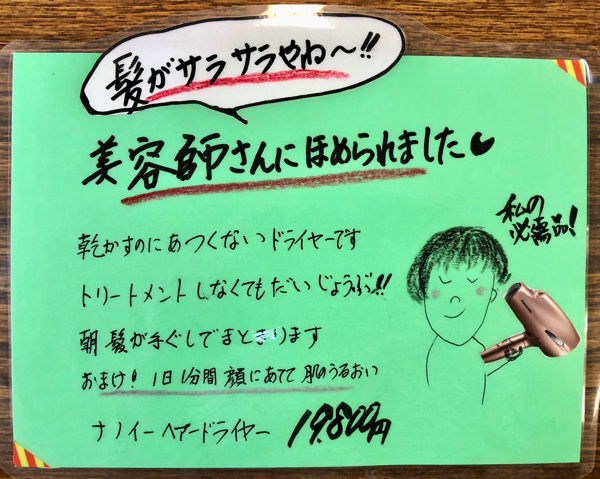 髪がサラサラやね〜!!
美容師さんにほめられました
私の
必需品!
乾かすのにあつくないドライヤーです
トリートメントしなくてもだいじょうぶ!!
朝髪が手ぐしでまとまります
おまけ! 1日1分間 顔にあてて 肌のうるおい
ナノイーヘアードライヤー 19,800円